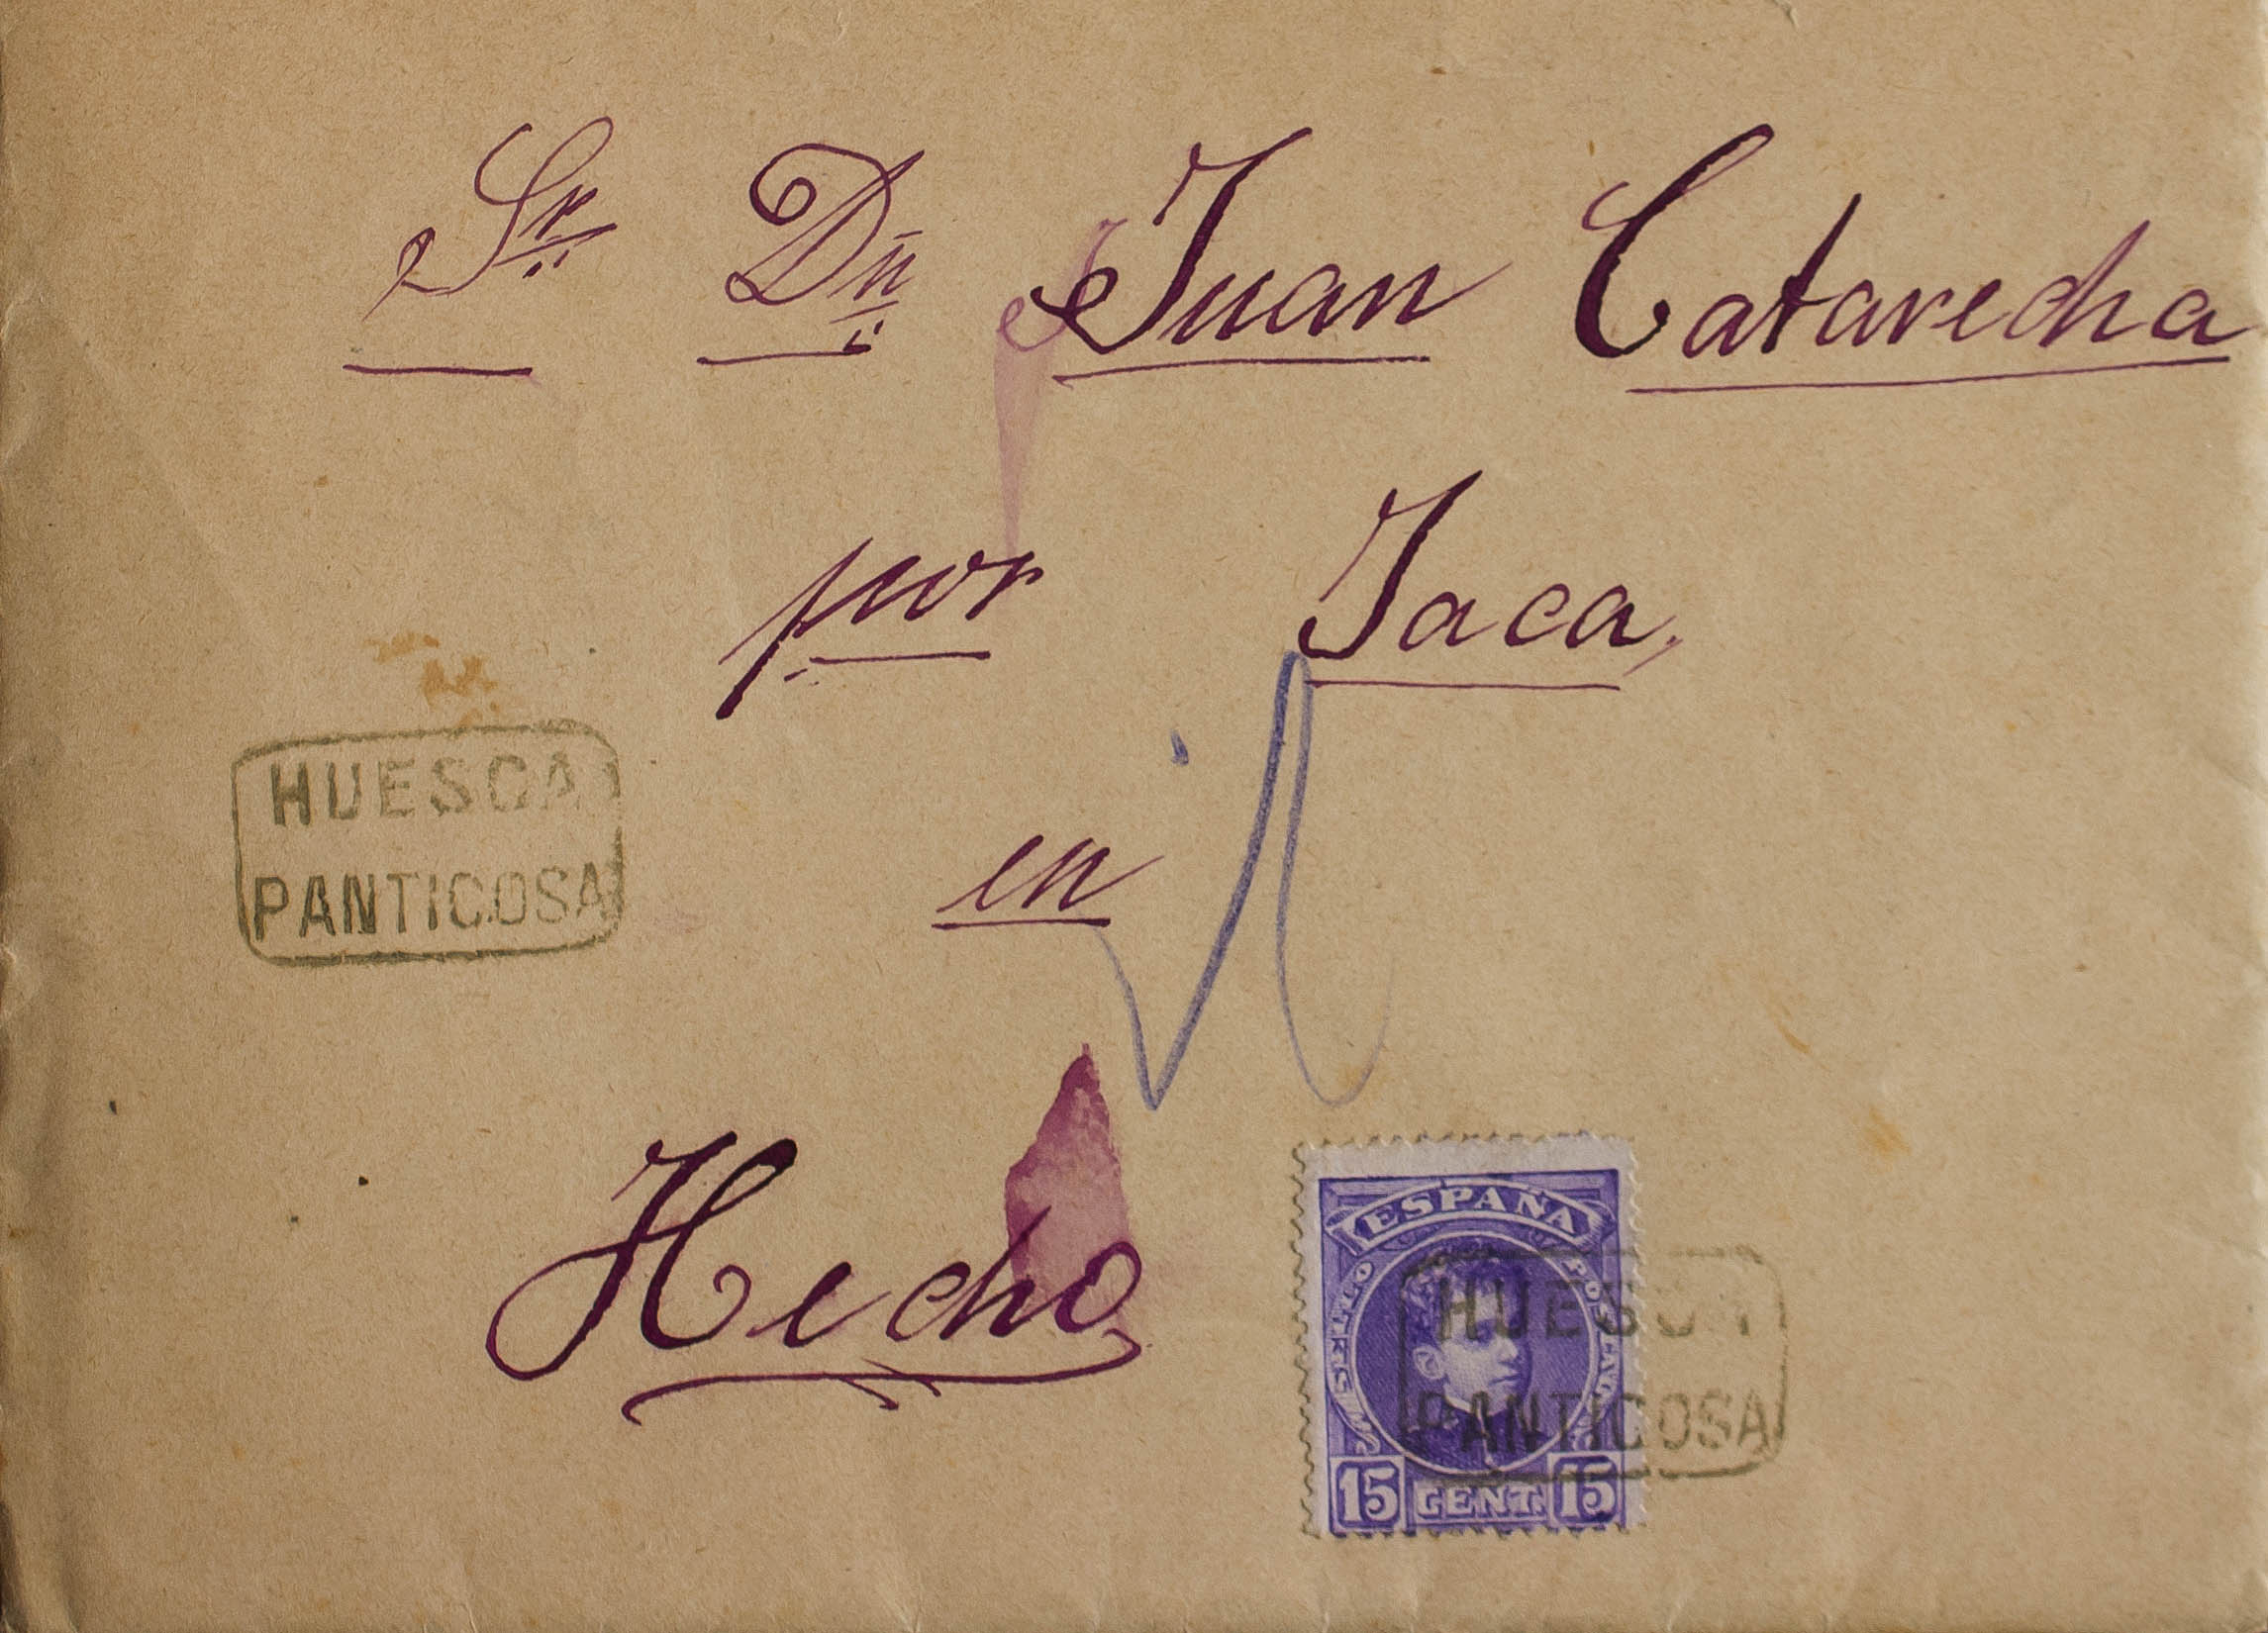 Sr. Dn. Juan Catarecha
por Jaca,
en
HUESCA
PANTICOSA
Hecho
ESPAÑA
SELLO POSTAL
HUESCA
PANTICOSA
15 CENT. 15